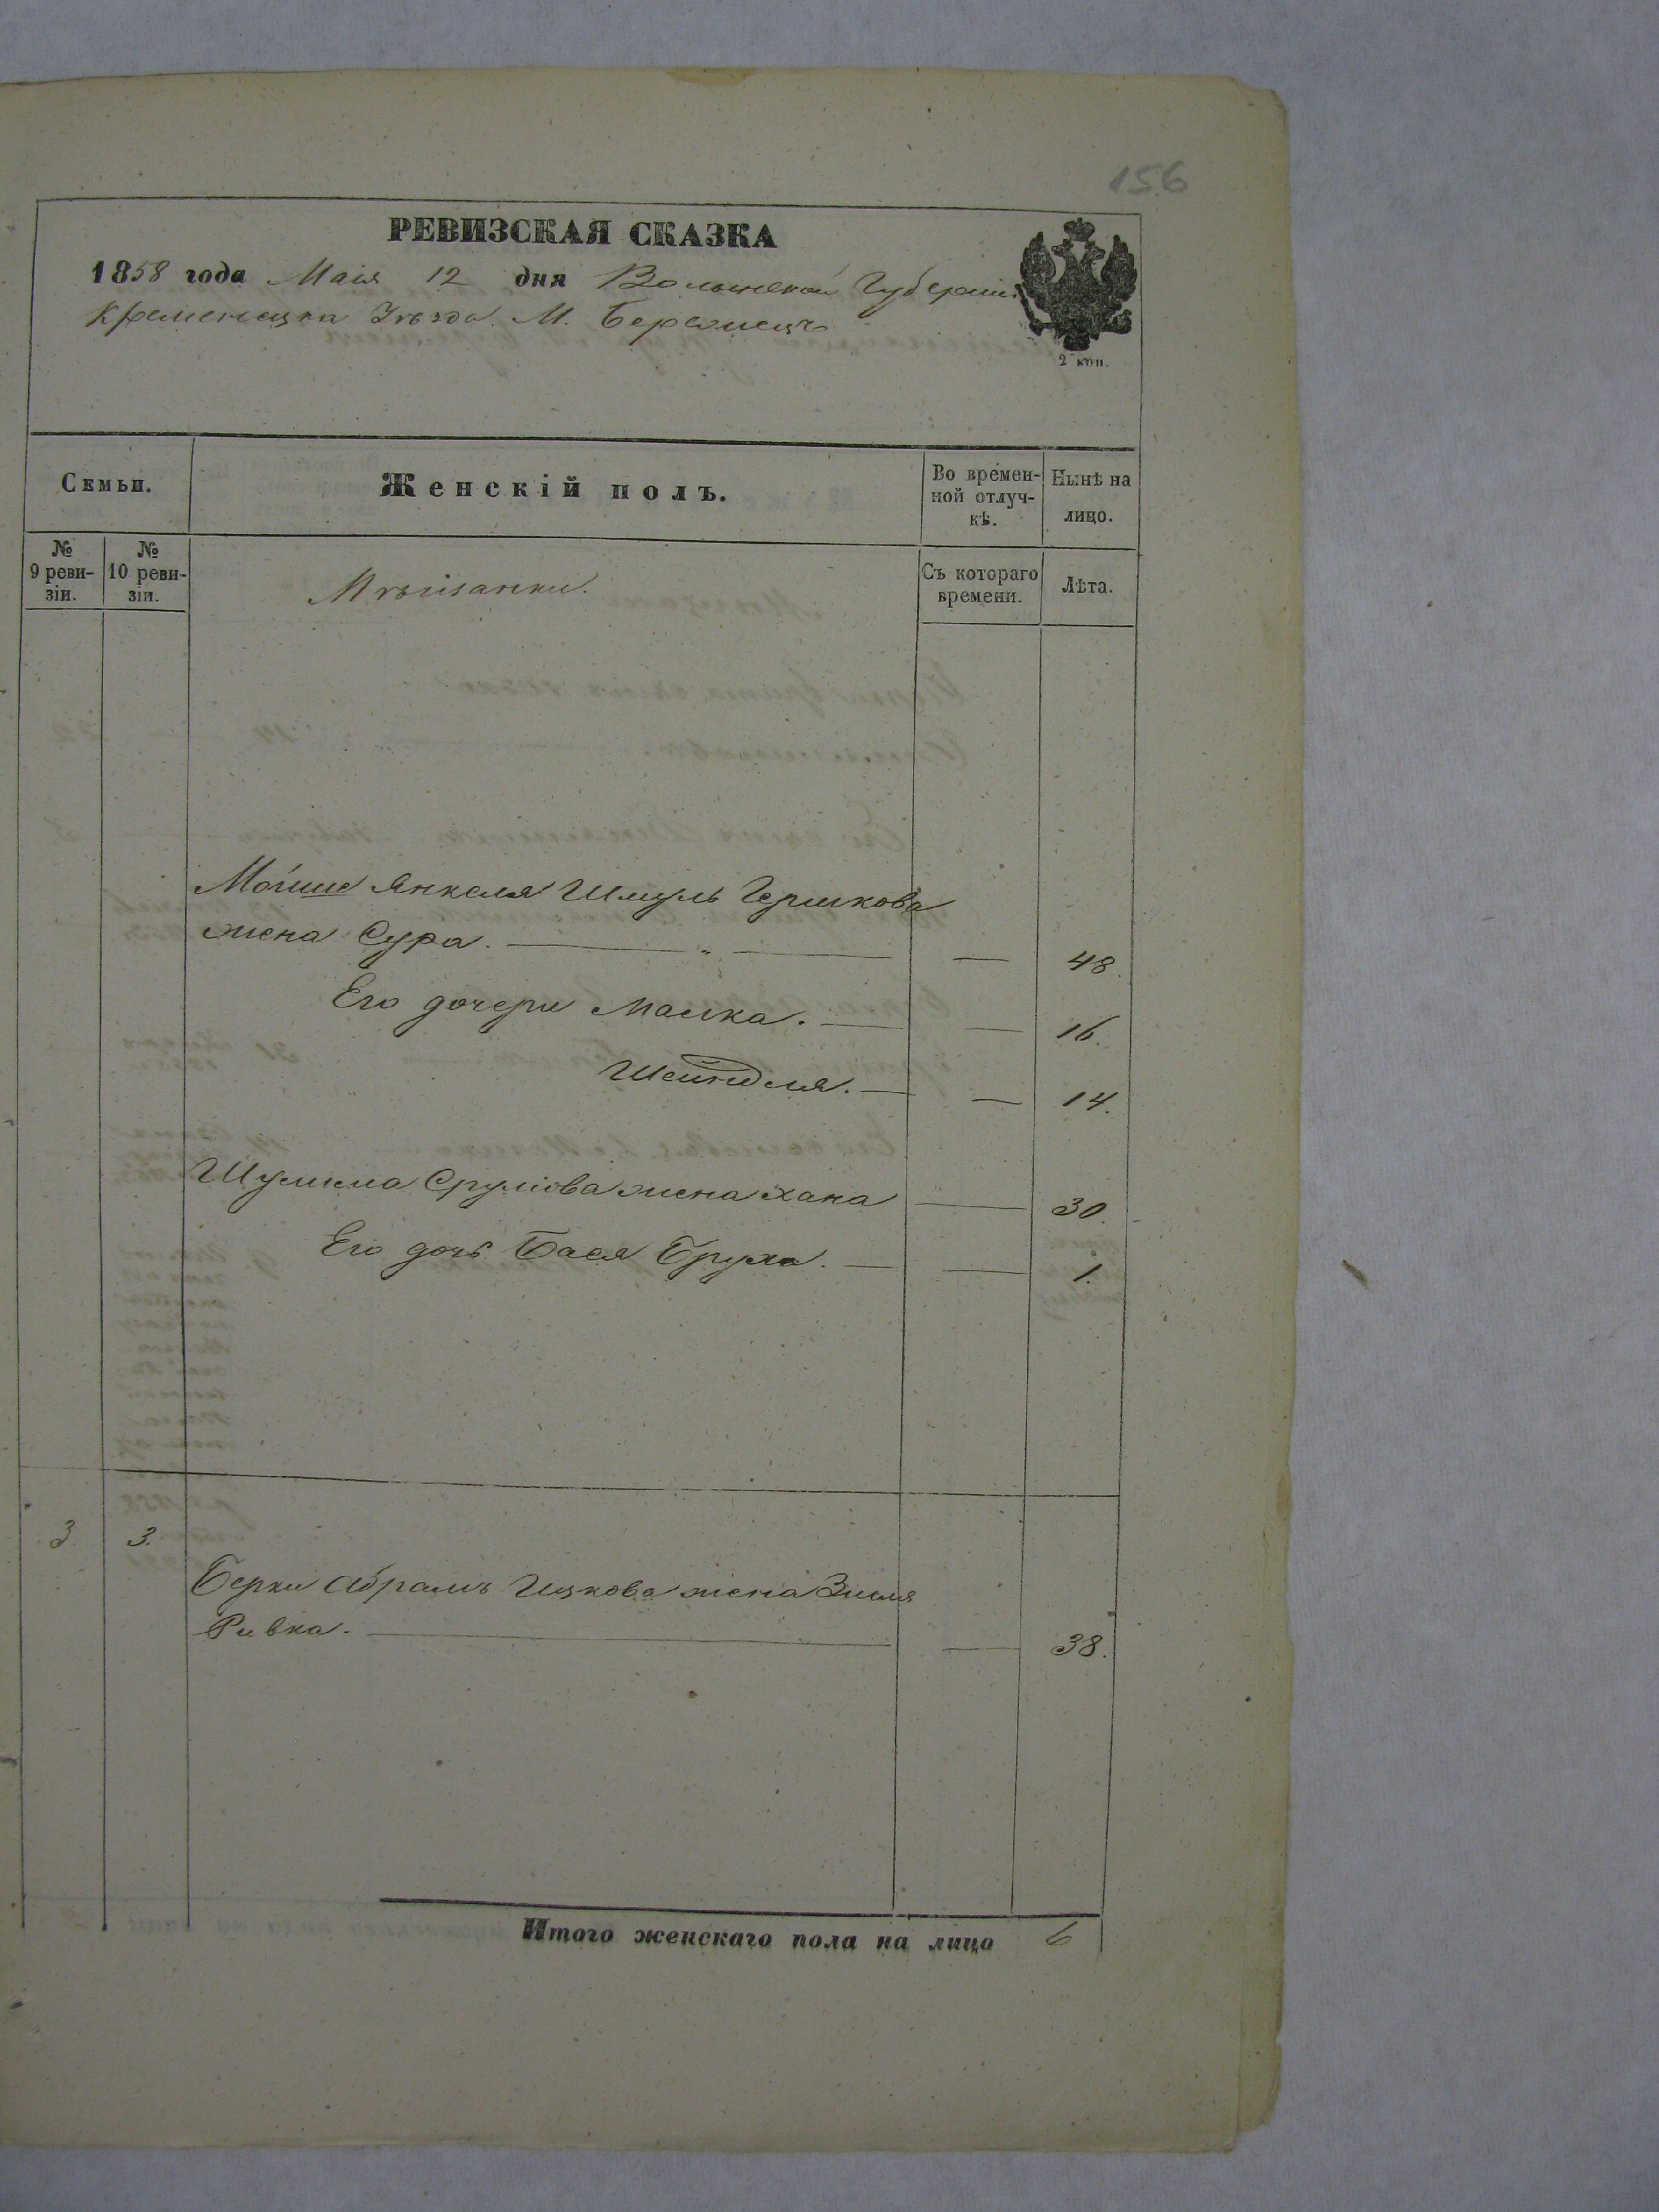 156
РЕВИЗСКАЯ СКАЗКА
1858 года Маія 12 дня Волынской Губерніи
Кременецка Уѣзда. М. Бережецъ
2 коп.
Семьи.
Женскій полъ.
Во времен-
ной отлуч-
кѣ.
Нынѣ на
лицо.
№
9 реви-
зіи.
№
10 реви-
зіи.
Мѣщанки.
Съ котораго
времени.
Лѣта.
Мошие Янкеля Шмуль Гершкова
жена Сура. — „ — — 48.
Его дочери Малка. — — 16.
Шейндля. — — 14.
Шулима Срулiова жена Хана — 30.
Его дочь Бася Бруха. — — 1.
3 3.
Берки Абрамъ Ицкова жена Зисля
Ривка. — — 38.
Итого женскаго пола на лицо 6